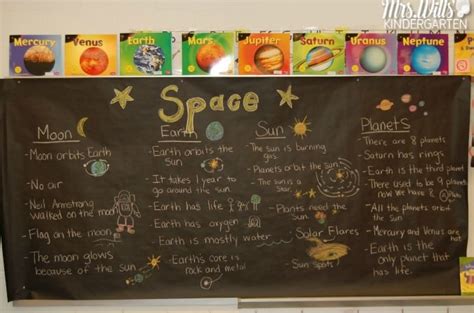 Mrs. Wills
KINDERGARTEN
Mercury
Venus
Earth
Mars
Jupiter
Saturn
Uranus
Neptune
Space
Moon
- Moon orbits Earth
- No air
- Neil Armstrong
walked on the moon
- Flag on the moon
- The moon glows
because of the sun.
Earth
- Earth orbits the
sun
- It takes 1 year to
go around the sun.
- Earth has life
- Earth has oxygen
- Earth is mostly water
- Earth's core is
rock and metal
Sun
- The sun is burning
gas.
- Planets orbit the sun
- The sun is a
star.
- Plants need the
sun.
- Solar Flares
- Sun Spots
Planets
- There are 8 planets
- Saturn has rings
- Earth is the third
- There used to be 9 planets
now we have 8
- All the planets orbit
the sun
- Mercury and Venus are hot
- Earth is the only
planet that
has life.